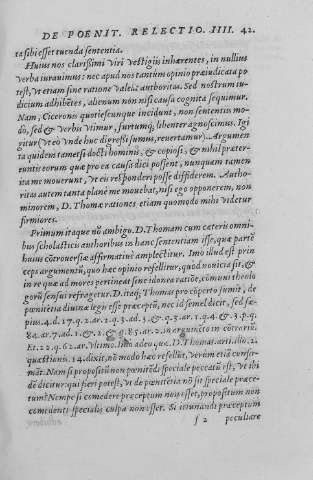 DE POENIT. RELECTIO. IIII. 42.
ta sibi esset tuenda sententia.
Huius nos clarissimi viri vestigiis inhærentes, in nullius
verba iurauimus: nec apud nos tantùm opinio præiudicata po
test, vt etiam sine ratione valeat authoritas. Sed nostrum iu-
dicium adhibētes, alienum non nisi causa cognita sequimur.
Nam, Ciceronis quotiescunque incidunt, non sententiis mo-
dò, sed & verbis vtimur, furtumq; libenter agnoscimus. Igi
gitur (vt eò vnde huc digressi sumus, reuertamur) Argumen
ta quidem tametsi docti hominis, & copiosi, & nihil præter-
euntis eorum quæ pro ea causa dici possent, nunquam tamen
ita me mouerunt, vt eis responderi posse diffiderem. Autho-
ritas autem tanta planè me mouebat, nisi ego opponerem, non
minorem, D. Thomæ rationes etiam quomodo mihi videtur
firmiores.
Primum itaque nō ambigo D. Thomam cum ceteris omni-
bus scholasticis authoribus in hanc sententiam isse, quæ partē
huius cōtrouersiæ affirmatiuè amplectitur. Imo illud est prin
ceps argumentū, quo hæc opinio refellitur, quòd nouicia sit, &
in re quæ ad mores pertinea t sine idonea ratiōe, cōmuni theolo
gorū sensui refragetur. D. iteq; Thomas pro cōperto sumit, de
pœnitētia diuinæ legis esse præceptū, nec id semel dicit, sed sæ-
pius. 4. d. 17. q. 2. ar. 1. q. 3. ad. 3. & q. 3. ar. 1. q. 4. & 3. p. q.
84. ar. 7. ad. 1. & 2. & q. 85. ar. 2. in argumēto in cōtrariū.
Et. 22. q. 62. ar. vltimo. Imò adeo, quòd D. Thom. arti. dio. 21
quæstionū. 14. dixit, nō modò hæc refellūt, verùm etiā confir-
māt. Nam si propositū non pœnitēdi speciale peccatū est, vt ibi
dē dicitur: qui fieri potest, vt de pœnitētia nō sit speciale præce-
tum? Nempe si comedere præceptum non esset, propositum non
comedenti specialis culpa non esset. Si ieiunandi præceptum
f 2 peculiare